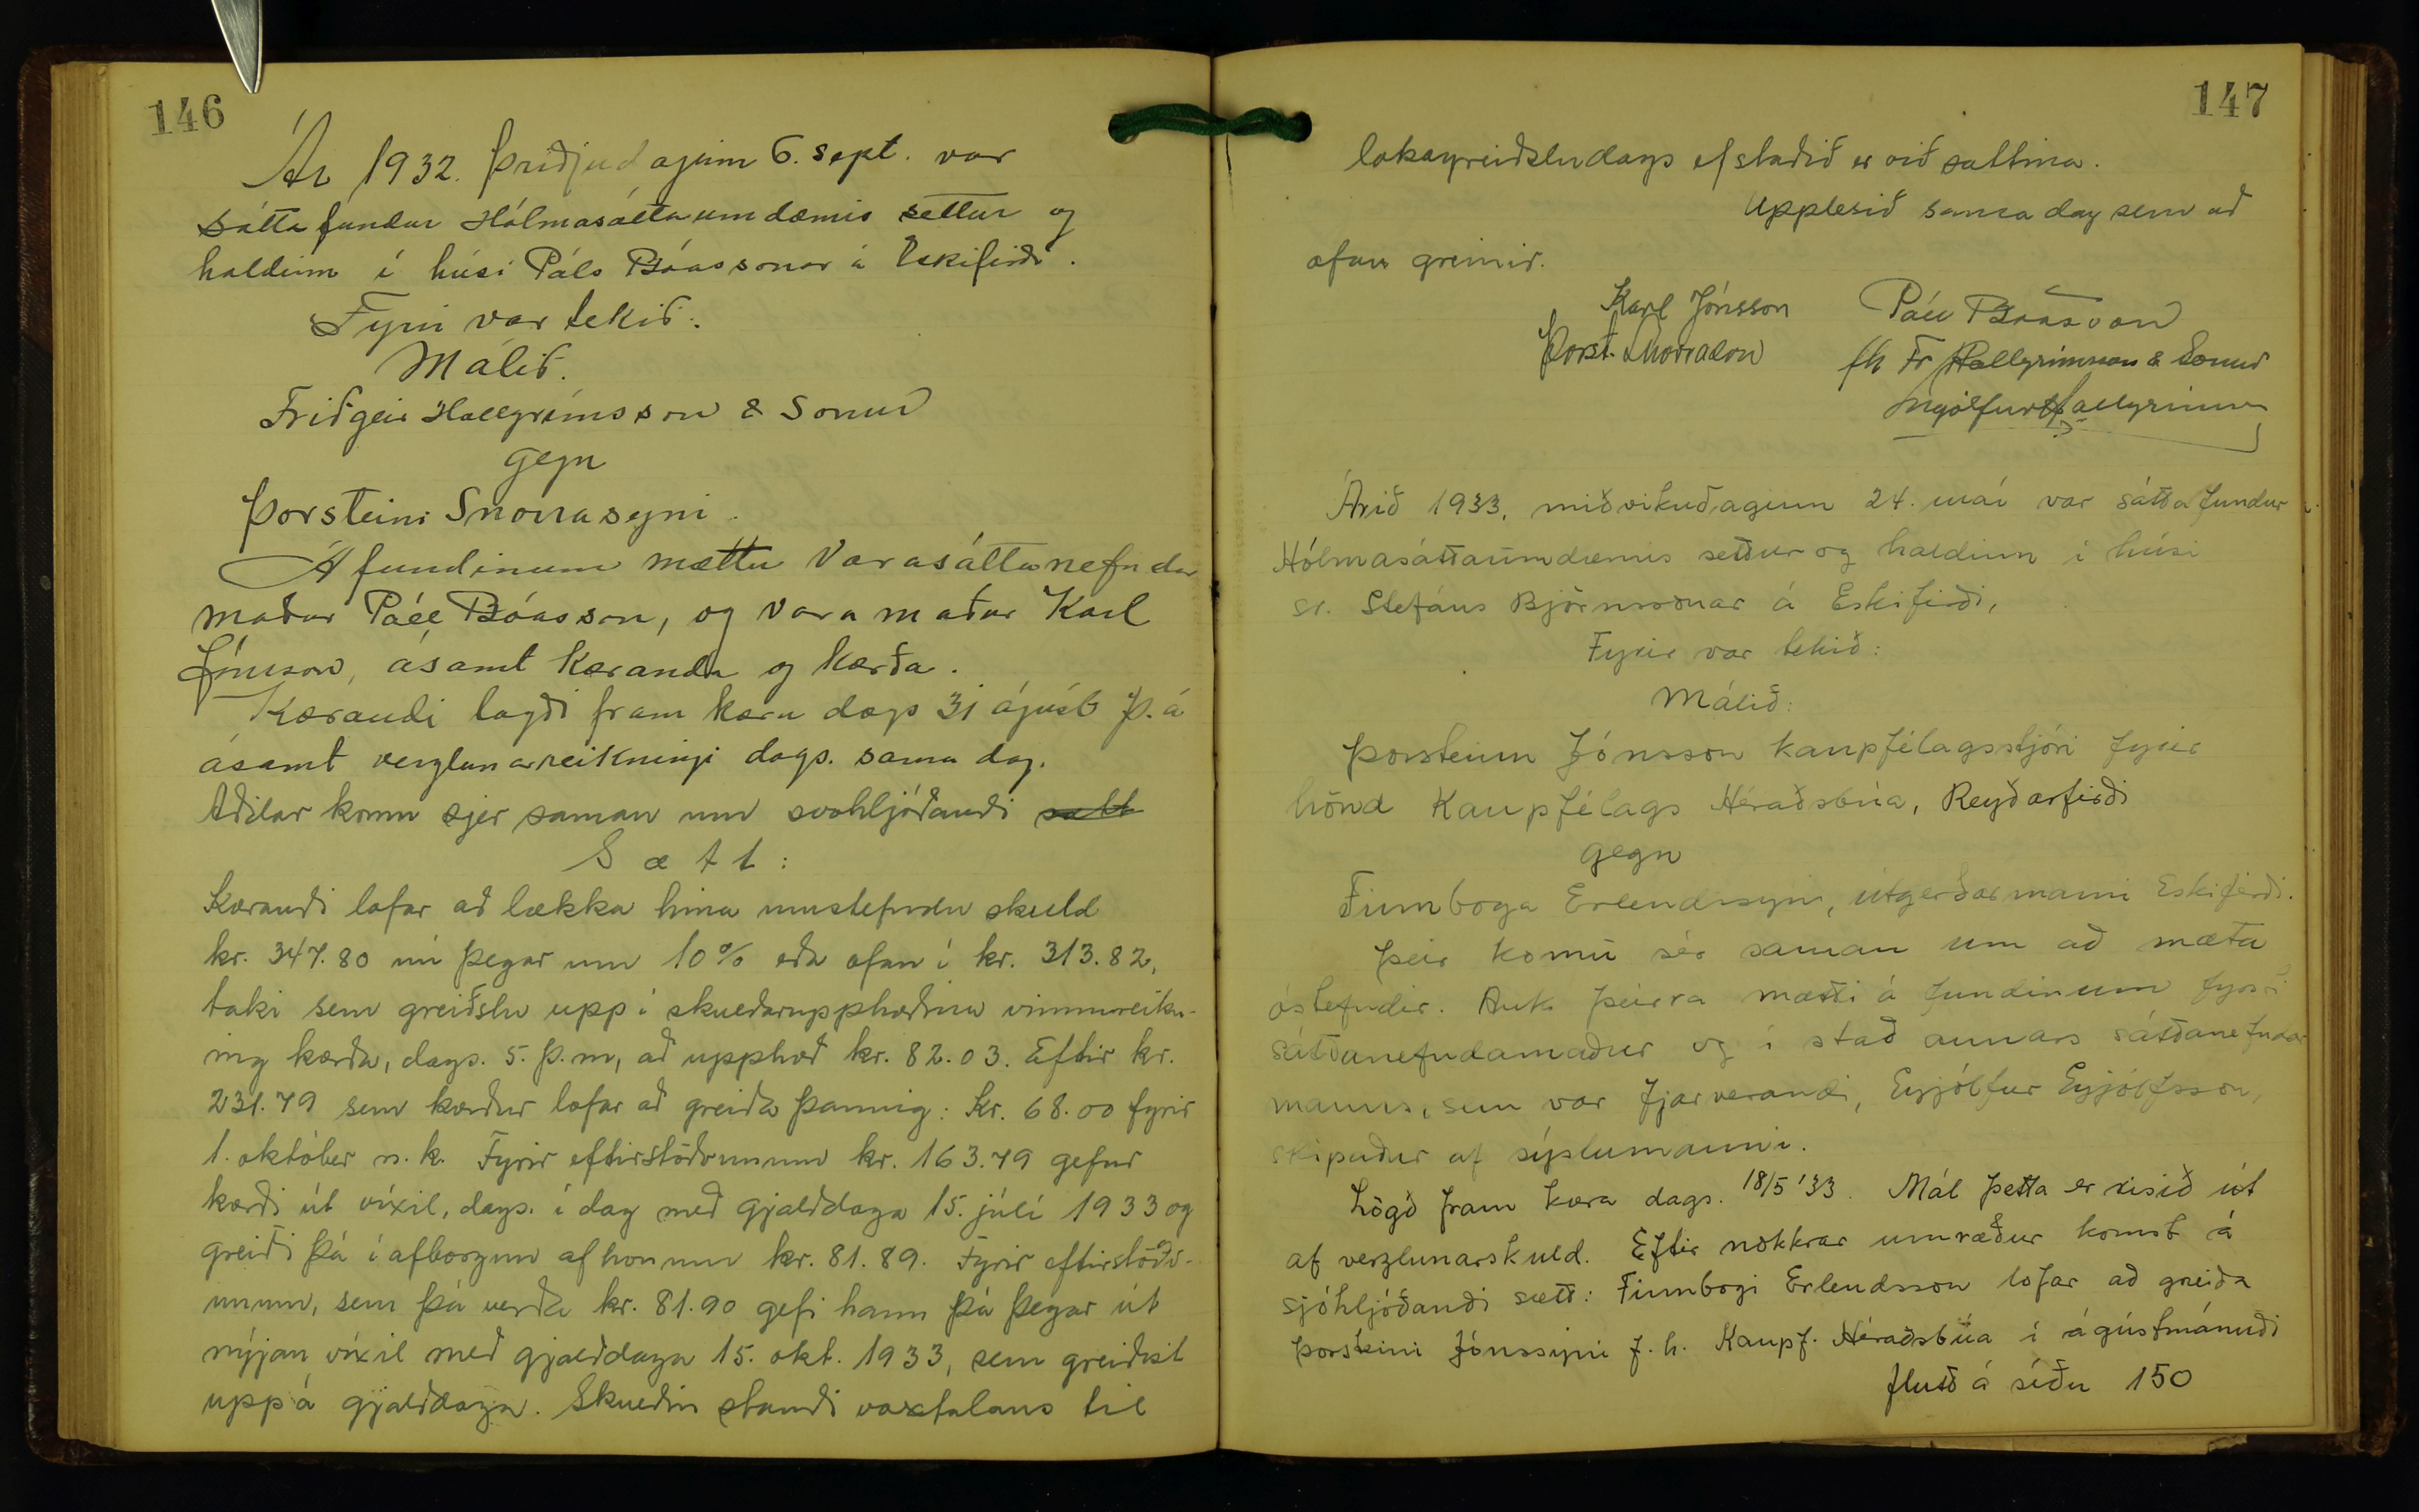 146
Ár 1932. Þriðjudaginn 6. sept. var
sáttafundur Hólmasáttaumdæmis settur og
haldinn í húsi Páls Bóassonar á Eskifirði.
Fyrir var tekið:
Málið.
Friðgeir Hallgrímsson & Sonur
gegn
Þorsteini Snorrasyni.
Á fundinum mættu Varasáttanefndar
maður Páll Bóasson, og varamaður Karl
Jónsson, ásamt kæranda og kærða.
Kærandi lagði fram kæru dags 31 ágúst þ.á
ásamt verzlunarreikningi dags. sama dag.
Aðilar komu sjer saman um svohljóðandi sætt
Sætt:
Kærandi lofar að lækka hina umstefndu skuld
kr. 347.80 nú þegar um 10% eða ofan í kr. 313.82,
taki sem greiðslu upp í skuldarupphæðina vinnureikn-
ing kærða, dags. 5. þ.m, að upphæð kr. 82.03. Eftir kr.
231.79 sem kærður lofar að greiða þannig: Kr. 68.00 fyrir
1. október n.k. Fyrir eftirstöðvunum kr. 163.79 gefur
kærði út víxil, dags. í dag með gjalddaga 15. júlí 1933 og
greiði þá í afborgun af honum kr. 81.89. Fyrir eftirstöðv-
unum, sem þá verða kr. 81.90 gefi hann þá þegar út
nýjan víxil með gjalddaga 15. okt. 1933, sem greiðist
upp á gjalddaga. Skuldin standi vaxtalaus til
147
lokagreiðsludags ef staðið er við sættina.
Upplesið sama dag sem að
ofan greinir.
Karl Jónsson Páll Bóasson
Þorst. Snorrason fh Fr Hallgrímsson & Sonur
Ingólfur Hallgrímsson
Árið 1933, miðvikudaginn 24. maí var sáttafundur í
Hólmasáttaumdæmis settur og haldinn í húsi
sr. Stefáns Björnssonar á Eskifirði,
Fyrir var tekið:
Málið:
Þorsteinn Jónsson kaupfélagsstjóri fyrir
hönd Kaupfélags Héraðsbúa, Reyðarfirði
gegn
Finnboga Erlendssyni, útgerðarmanni Eskifirði.
Þeir komu sér saman um að mæta
óstefndir. Auk þeirra mætti á fundinum fyrsti
sáttanefndamaður og í stað annars sáttanefndar
manns, sem var fjarverandi, Eyjólfur Eyjólfsson,
skipaður af sýslumanni.
Lögð fram kæra dags. 18/5 '33. Mál þetta er risið út
af verzlunarskuld. Eftir nokkrar umræður komst á
sjóhljóðandi sætt: Finnbogi Erlendsson lofar að greiða
Þorsteini Jónssyni f.h. Kaupf. Héraðsbúa í ágústmánuði
flutt á síðu 150